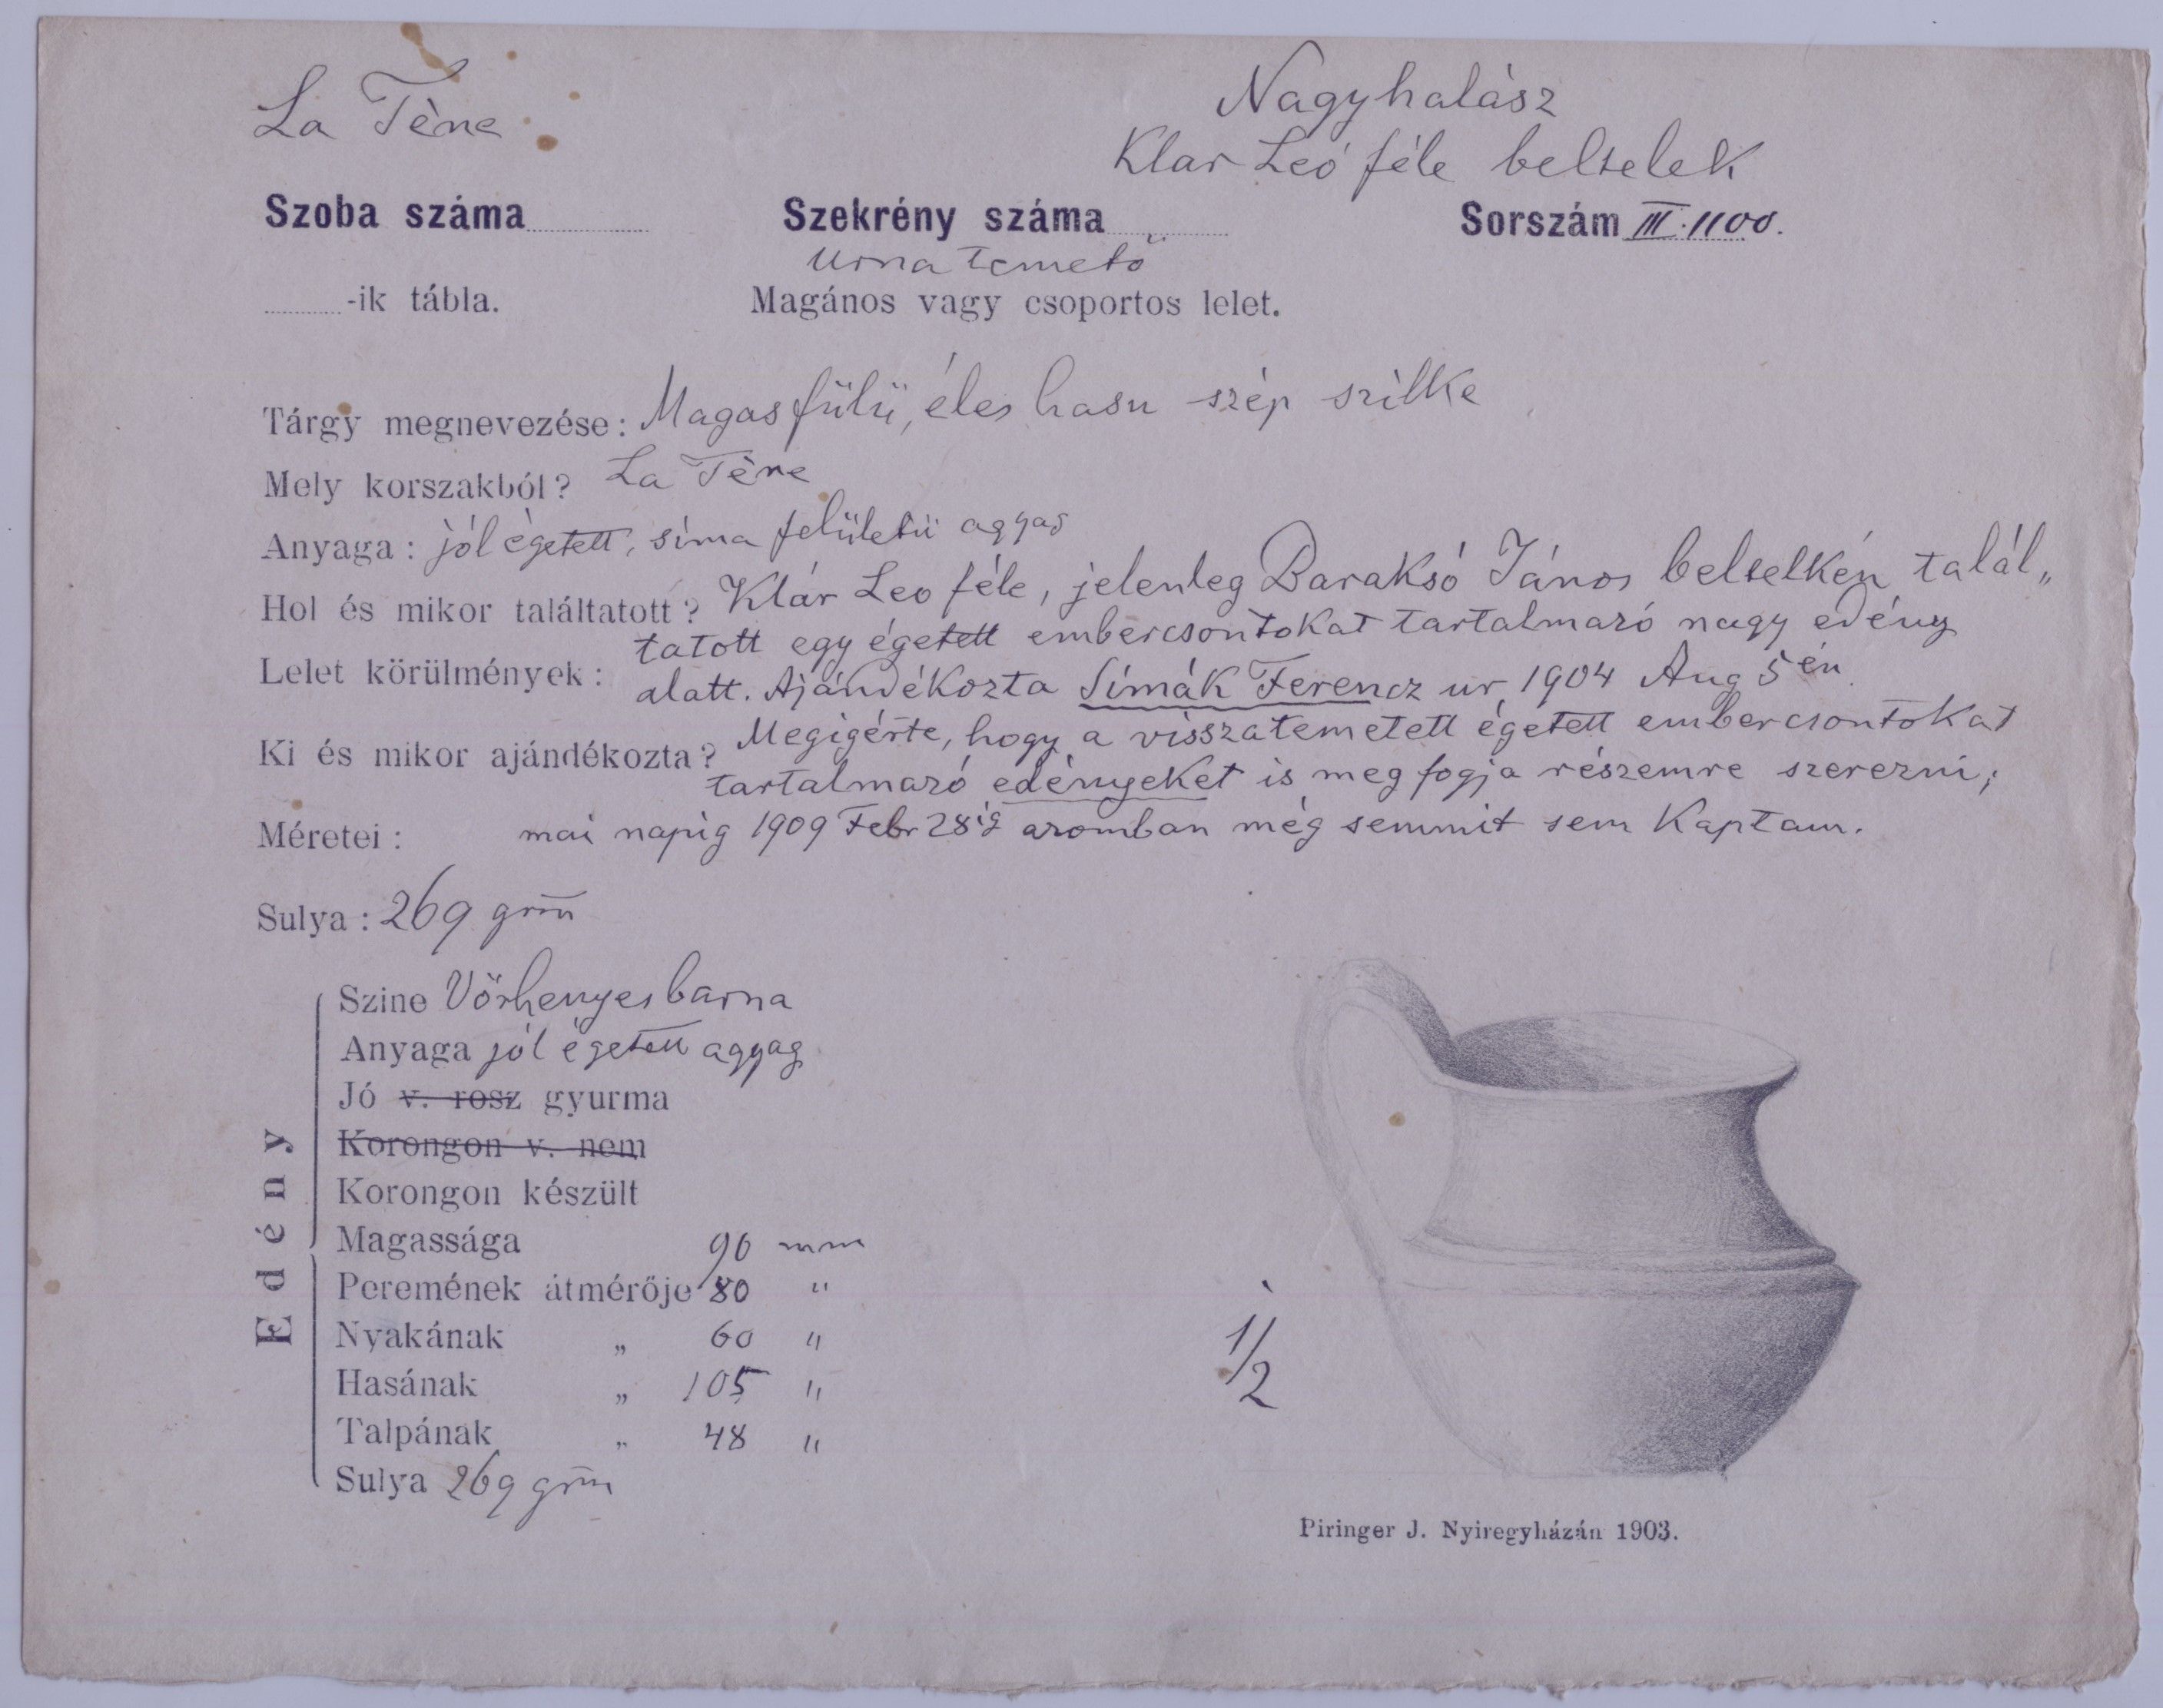 La Tène
Nagyhalász
Klar Leó féle beltelek
Szoba száma
Szekrény száma
Sorszám III. 1100.
Urna temető
-ik tábla.
Magános vagy csoportos lelet.
Tárgy megnevezése: Magas fülü, éles hasu szép szilke
Mely korszakból? La Tène
Anyaga: jól égetett, sima felületü agyag
Hol és mikor találtatott? Klár Leo féle, jelenleg Baraksó János beltelkén talál„
tatott egy égetett embercsontokat tartalmazó nagy edény
Lelet körülmények: alatt. Ajándékozta Simák Ferencz ur 1904 Aug 5én.
Ki és mikor ajándékozta? Megigérte, hogy a visszatemetett égetett embercsontokat
tartalmazó edényeket is meg fogja részemre szerezni;
Méretei: mai napig 1909 Febr 28ig azomban még semmit sem kaptam.
Sulya: 269 grm
Edény
Szine Vörhenyes barna
Anyaga jól égetett agyag
Jó v. rosz gyurma
Korongon v. nem
Korongon készült
Magassága 90 mm
Peremének átmérője 80 "
Nyakának „ 60 "
Hasának „ 105 "
Talpának „ 48 "
Sulya 269 grm
1/2
Piringer J. Nyiregyházán 1903.